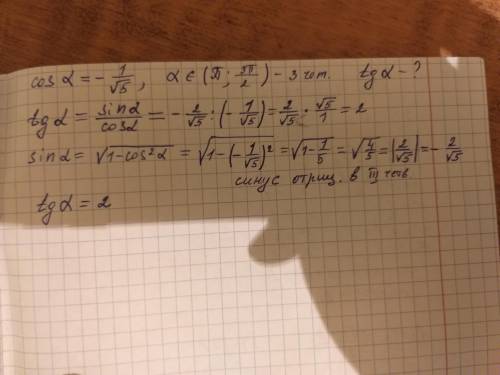 cos α = - 1/√5, α ∈ (π; 3π/2) - 3 чет. tg α - ?
tg α = sin α/cos α = - 2/√5 : (- 1/√5) = 2/√5 · √5/1 = 2
sin α = √(1-cos²α) = √(1-(-1/√5)²) = √(1-1/5) = √(4/5) = |2/√5| = - 2/√5
синус отриц. в III четв
tg α = 2